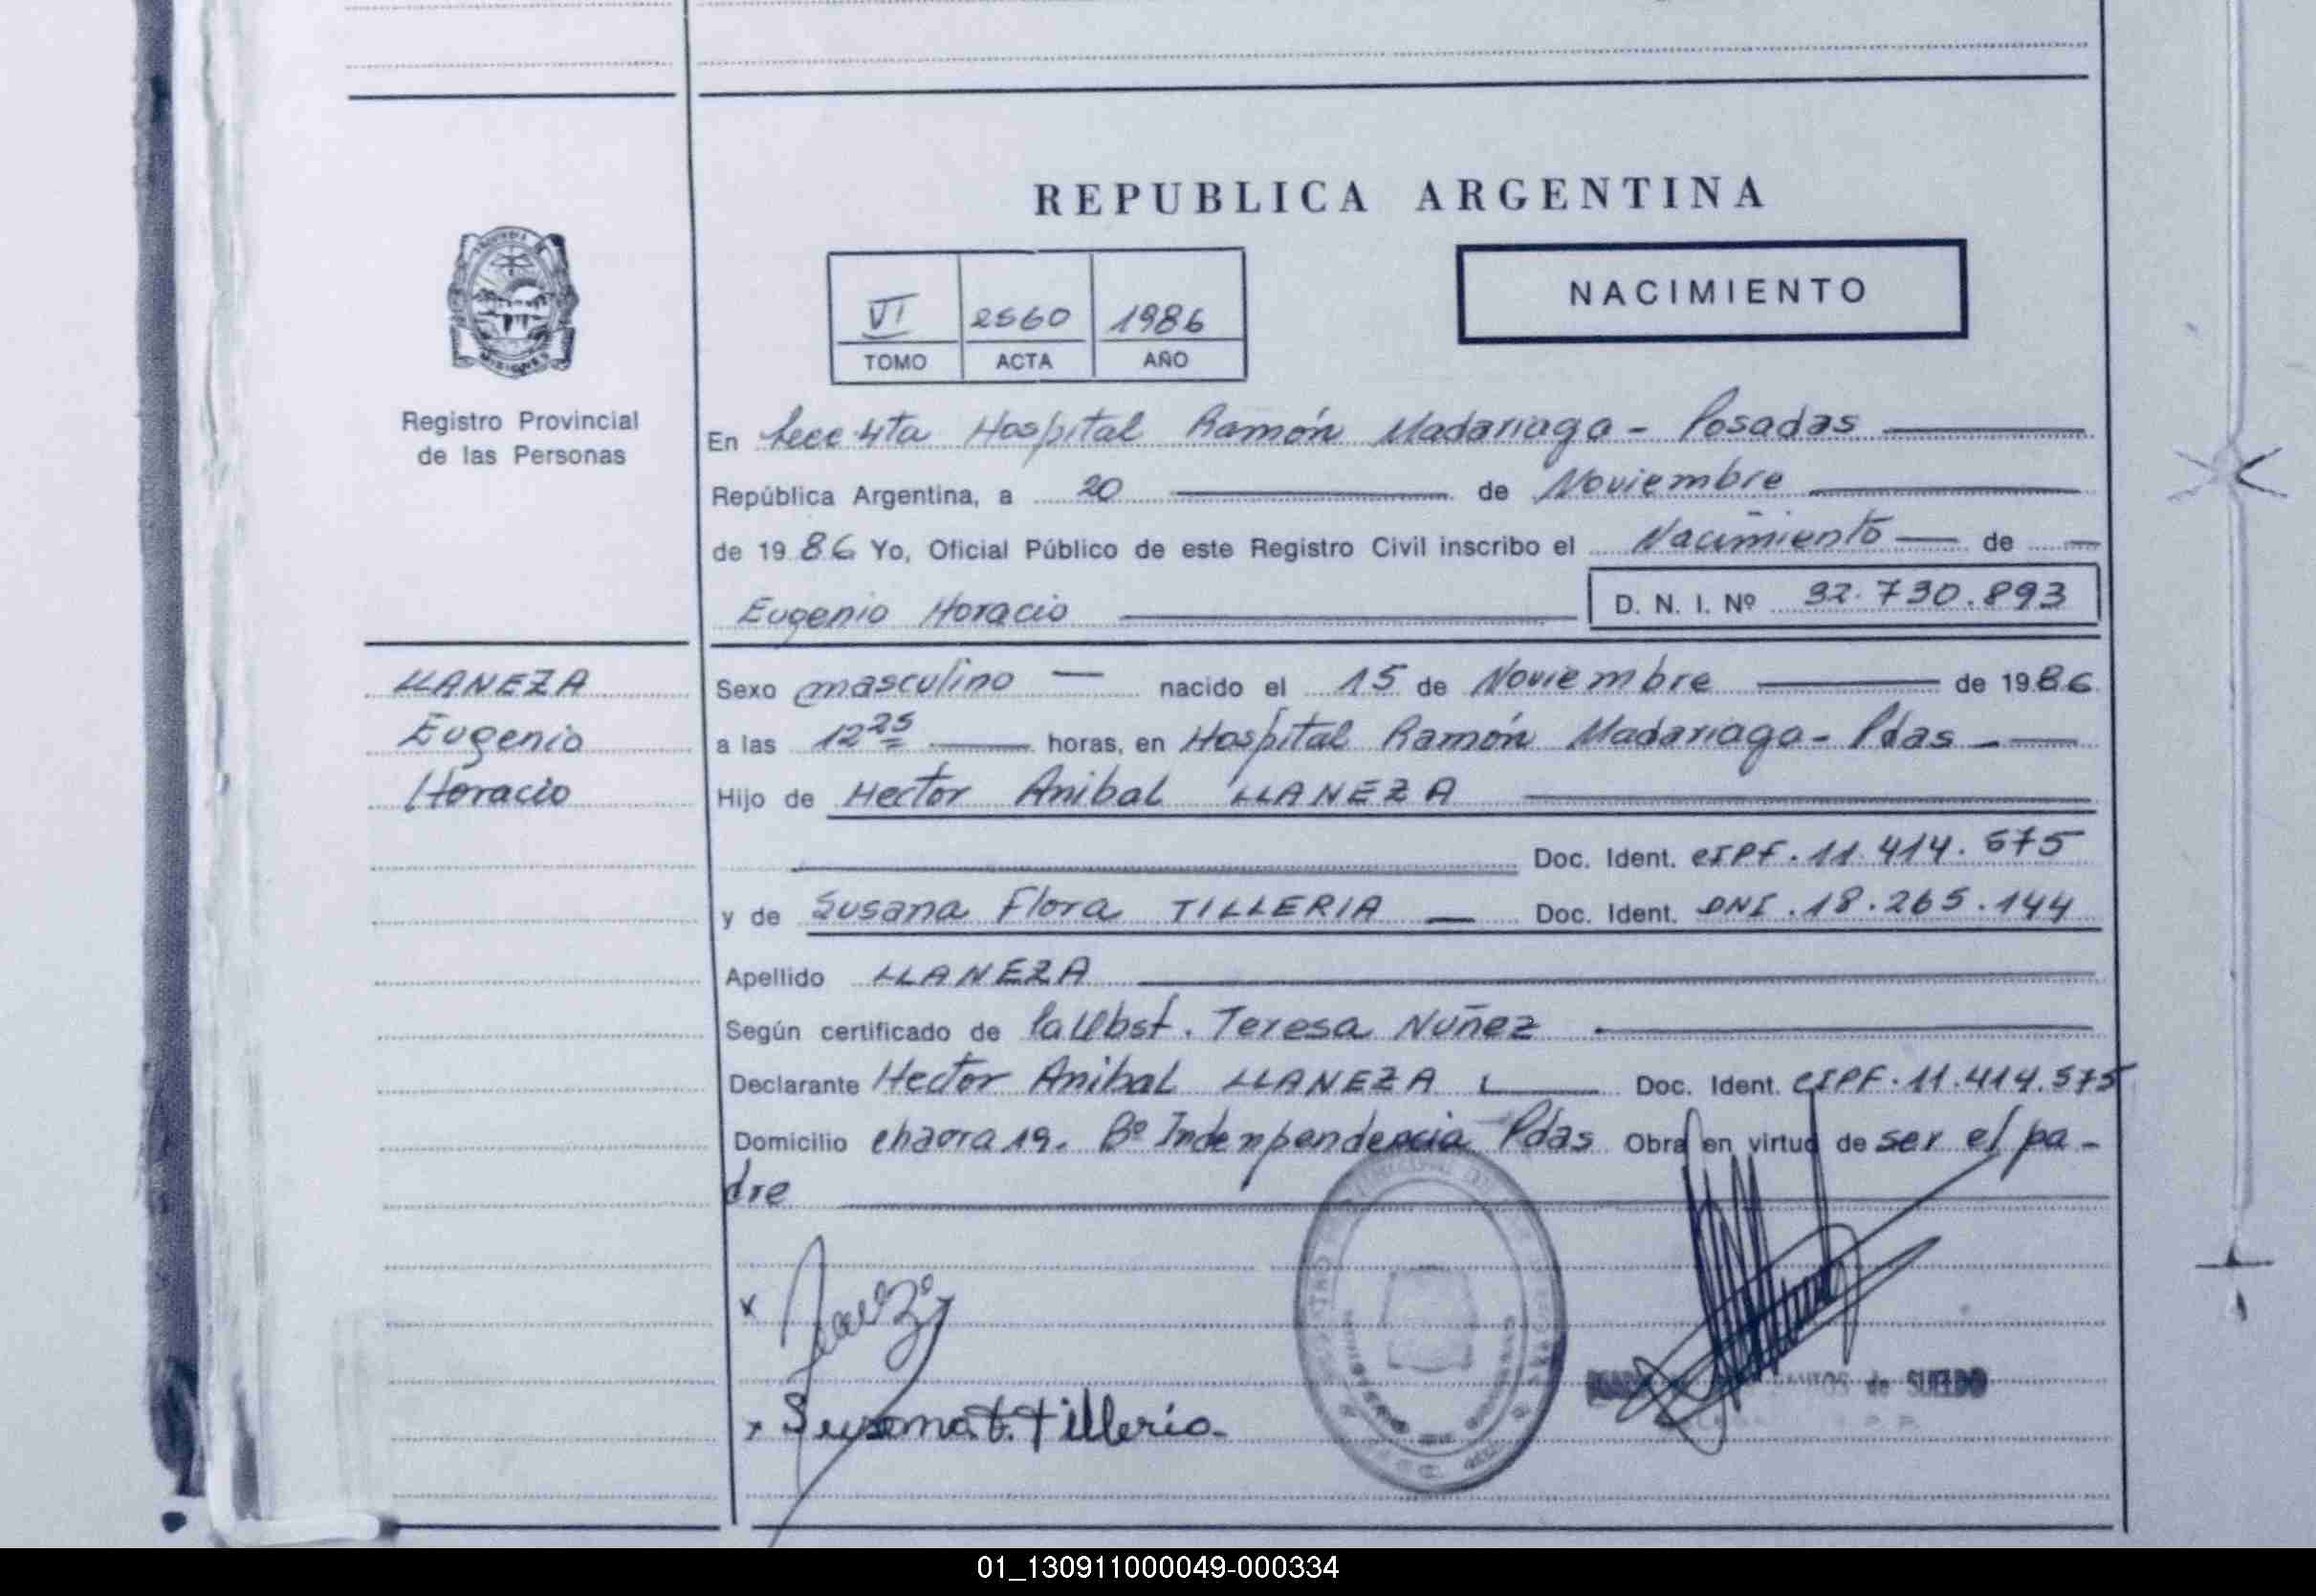 REPUBLICA ARGENTINA
NACIMIENTO
VI 2560 1986
TOMO ACTA AÑO
Registro Provincial
de las Personas
En Secc 4ta Hospital Ramón Madariaga - Posadas
República Argentina, a 20 de Noviembre
de 1986 Yo, Oficial Público de este Registro Civil inscribo el Nacimiento de
Eugenio Horacio
D. N. I. Nº 32.730.893
LLANEZA
Eugenio
Horacio
Sexo masculino nacido el 15 de Noviembre de 1986
a las 12 25 horas, en Hospital Ramón Madariaga - Pdas
Hijo de Hector Anibal LLANEZA
Doc. Ident. CIPF. 11.414.575
y de Susana Flora TILLERIA Doc. Ident. DNI. 18.265.144
Apellido LLANEZA
Según certificado de la Obst. Teresa Nuñez
Declarante Hector Anibal LLANEZA Doc. Ident. CIPF. 11.414.575
Domicilio chacra 19. Bº Indenpendencia Pdas Obra en virtud de ser el pa-
dre
x
x Susana F. Tilleria
de SUELDO
01_130911000049-000334